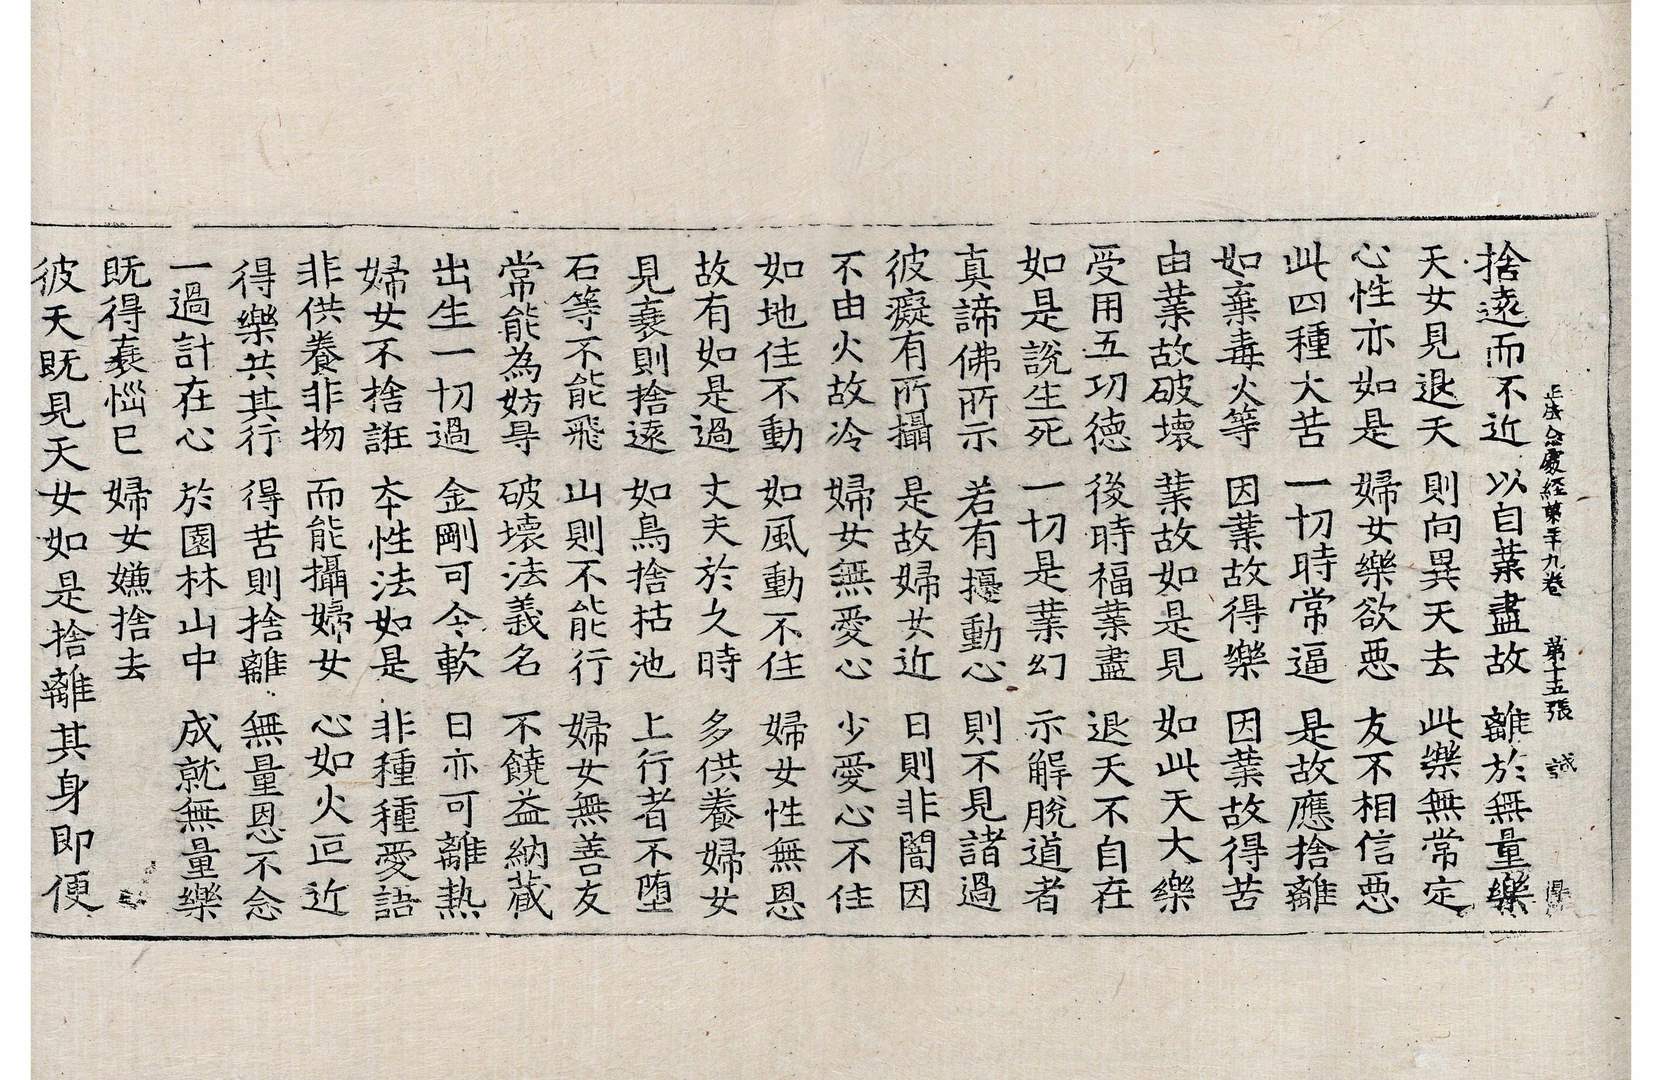 正法念處經第五十九卷 第十五張 誠
捨遠而不近 以自業盡故 離於無量樂
天女見退天 則向異天去 此樂無常定
心性亦如是 婦女樂欲惡 友不相信惡
此四種大苦 一切時常逼 是故應捨離
如棄毒火等 因業故得樂 因業故得苦
由業故破壞 業故如是見 如此天大樂
受用五功德 後時福業盡 退天不自在
如是說生死 一切是業幻 示解脫道者
真諦佛所示 若有擾動心 則不見諸過
彼癡有所攝 是故婦女近 日則非闇因
不由火故冷 婦女無愛心 少愛心不住
如地住不動 如風動不住 婦女性無恩
故有如是過 丈夫於久時 多供養婦女
見衰則捨遠 如鳥捨枯池 上行者不堕
石等不能飛 山則不能行 婦女無善友
常能為妨㝵 破壞法義名 不饒益納蔵
出生一切過 金剛可令軟 日亦可離熱
婦女不捨誑 本性法如是 非種種愛語
非供養非物 而能攝婦女 心如火叵近
得樂共其行 得苦則捨離 無量恩不念
一過計在心 於園林山中 成就無量樂
既得衰惱已 婦女嫌捨去
彼天既見天女如是捨離其身即便